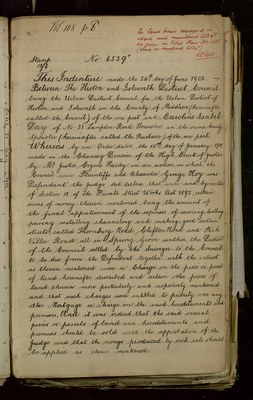 Vol 108. p. 6
No 4529
Stamp
This Indenture made the 24th day of June 1902.
Between The Heston and Isleworth District Council
being the Urban District Council for the Urban District of
Heston and Isleworth in the County of Middlesex (hereinafter
called the Council) of the one part and Caroline Isabel
Day of No 35 Lampton Road Hounslow in the same County
Spinster (hereinafter called the Purchaser) of the other part.
Whereas by an Order dated the 15th day of January 1901
made in the Chancery Division of the High Court of Justice
by Mr Justice Cozens Hardy in an action in which the
Council were Plaintiffs and Alexander George Hoy was
Defendant the Judge did declare that under and by virtue
of Section 13 of the Private Street Works Act 1892 certain
sums of money therein mentioned being the amount of
the final apportionment of the expenses of sewering levelling
paving metalling channelling and making good certain
streets called Thornbury Road Clifton Road and
Villiers Road all in Spring Grove within the District
of the Council settled by the Surveyor to the Council
to be due from the Defendant together with the interest
as therein mentioned were a Charge on the piece or parcel
of land hereinafter described and other the pieces of
land therein more particularly and respectively mentioned
and that such charges were entitled to priority over any
other Mortgage or charge on the said hereditaments and
premises, And it was ordered that the said several
pieces or parcels of land and hereditaments and
premises should be sold with the approbation of the
Judge and that the moneys produced by such sale should
be applied as therein mentioned.